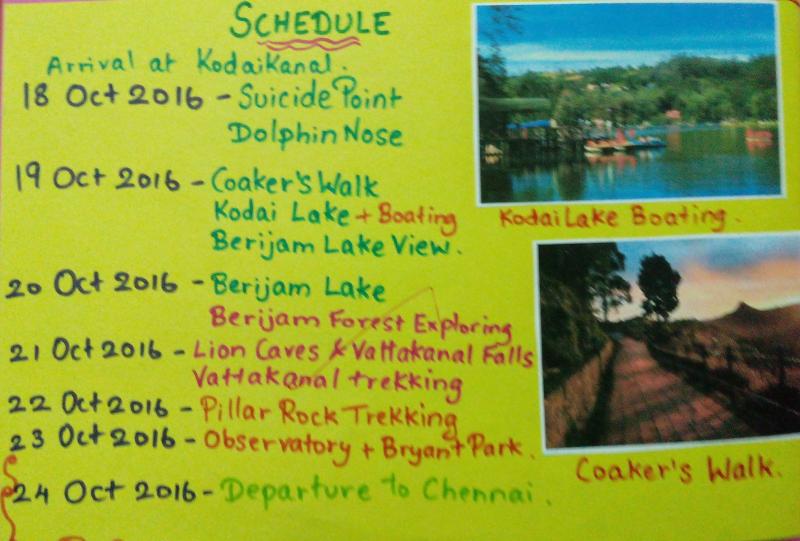 SCHEDULE
Arrival at Kodaikanal.
18 Oct 2016 - Suicide Point
Dolphin Nose
19 Oct 2016 - Coaker's Walk
Kodai Lake + Boating
Berijam Lake View.
Kodai Lake Boating.
20 Oct 2016 - Berijam Lake
Berijam Forest Exploring
21 Oct 2016 - Lion Caves & Vattakanal Falls
Vattakanal trekking
22 Oct 2016 - Pillar Rock Trekking
23 Oct 2016 - Observatory + Bryant Park.
Coaker's Walk.
24 Oct 2016 - Departure to Chennai.